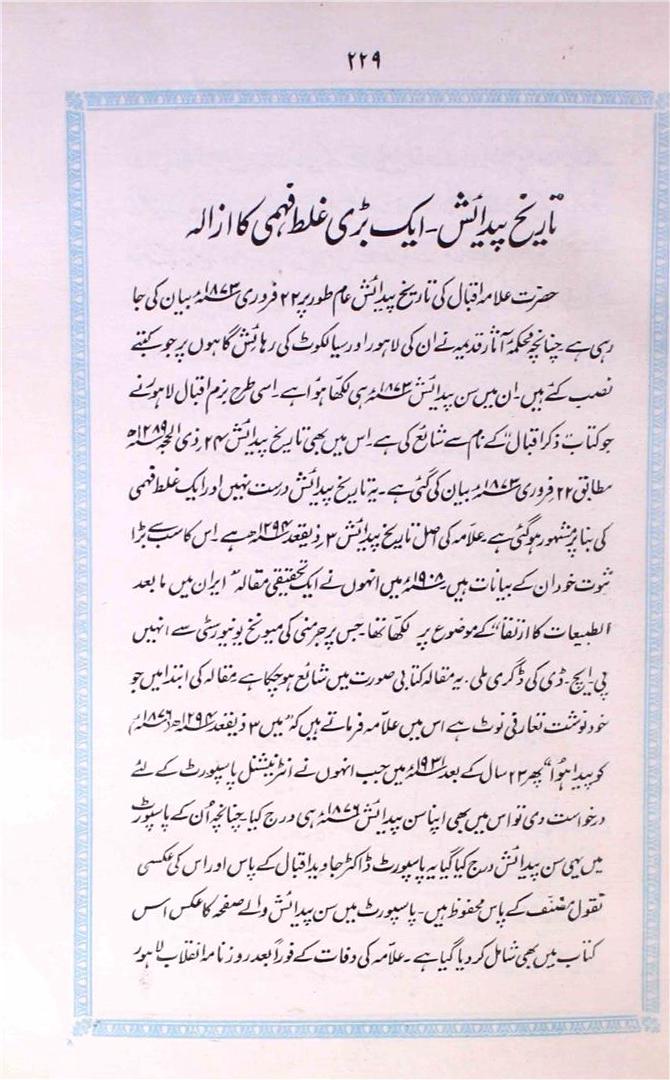 ۲۲۹
تاریخ پیدائش۔ ایک بڑی غلط فہمی کا ازالہ
حضرت علامہ اقبال کی تاریخ پیدائش عام طور پر ۲۲ فروری ۱۸۷۳ء بیان کی جا
رہی ہے چنانچہ محکمۂ آثار قدیمہ نے ان کی لاہور اور سیالکوٹ کی رہائش گاہوں پر جو کتبے
نصب کئے ہیں۔ ان میں سن پیدائش ۱۸۷۳ء ہی لکھا ہوا ہے۔ اسی طرح بزم اقبال لاہور نے
جو کتاب "ذکر اقبال" کے نام سے شائع کی ہے۔ اس میں بھی تاریخ پیدائش ۲۴ ذی الحجہ ۱۲۸۹ھ
مطابق ۲۲ فروری ۱۸۷۳ء بیان کی گئی ہے۔ یہ تاریخ پیدائش درست نہیں اور ایک غلط فہمی
کی بنا پر مشہور ہو گئی ہے۔ علامہ کی اصل تاریخ پیدائش ۳ ذیقعد ۱۲۹۴ھ ہے۔ اس کا سب سے بڑا
ثبوت خود ان کے بیانات ہیں۔ ۱۹۰۸ء میں انہوں نے ایک تحقیقی مقالہ "ایران میں ما بعد
الطبیعات کا ارتقا" کے موضوع پر لکھا تھا۔ جس پر جرمنی کی میونخ یونیورسٹی سے انہیں
پی۔ ایچ۔ ڈی کی ڈگری ملی۔ یہ مقالہ کتابی صورت میں شائع ہو چکا ہے مقالہ کی ابتدا میں جو
خود نوشت تعارفی نوٹ ہے اس میں علامہ فرماتے ہیں کہ "میں ۳ ذیقعد ۱۲۹۴ھ (۱۸۷۶ء)
کو پیدا ہوا" پھر ۲۳ سال کے بعد ۱۹۳۱ء میں جب انہوں نے انٹرنیشنل پاسپورٹ کے لئے
درخواست دی تو اس میں بھی اپنا سن پیدائش ۱۸۷۶ء ہی درج کیا۔ چنانچہ اُن کے پاسپورٹ
میں یہی سن پیدائش درج کیا گیا یہ پاسپورٹ ڈاکٹر جاوید اقبال کے پاس اور اس کی عکسی
نقول مصنف کے پاس محفوظ ہیں۔ پاسپورٹ میں سن پیدائش والے صفحہ کا عکس اس
کتاب میں بھی شامل کر دیا گیا ہے۔ علامہ کی وفات کے فوراً بعد روزنامہ انقلاب لاہور